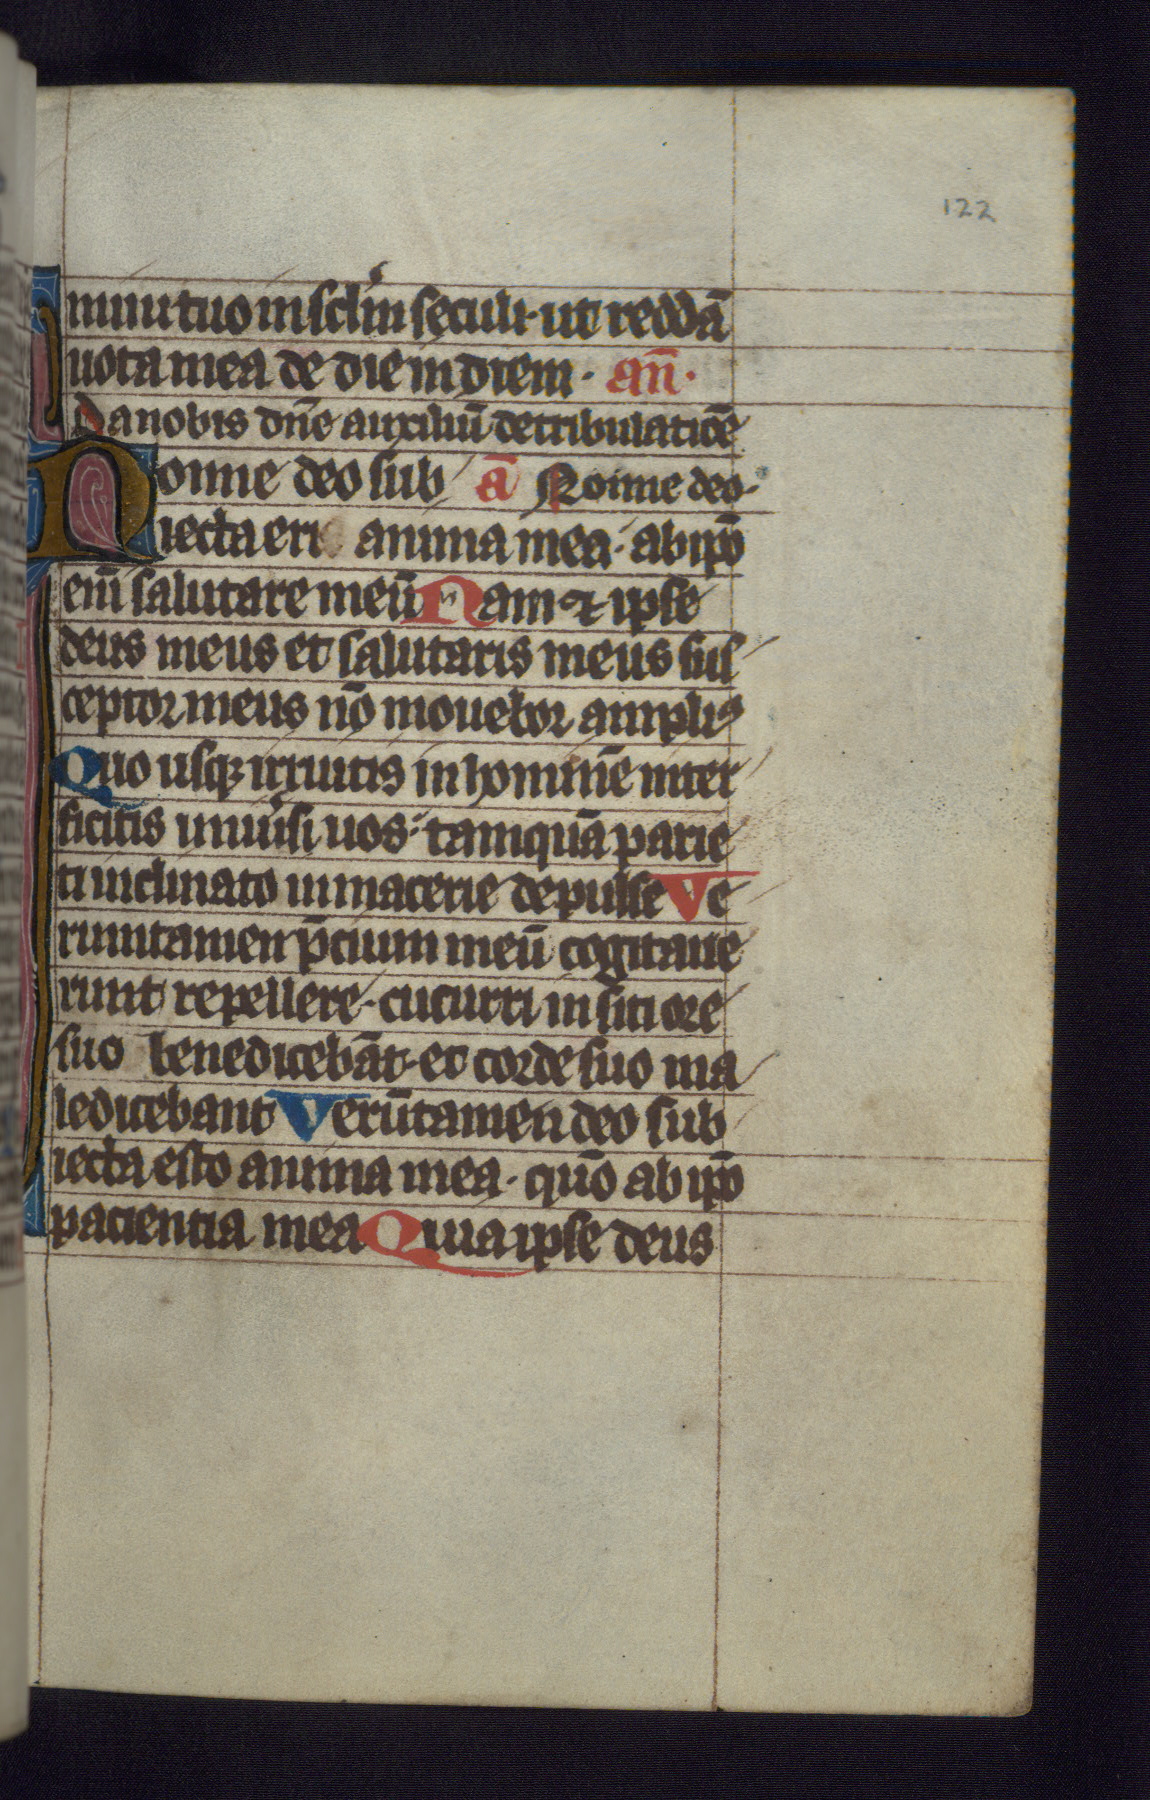 122
mini tuo in sclm seculi · ut reddā
uota mea de die in diem · añ ·
Da nobis dñe auxiliū de tribulatiōe
Nonne deo sub ā Nonne deo ·
iecta eri anima mea · ab ipō
em̄ salutare meū Nam ⁊ ipse
deus meus et salutaris meus sus
ceptor meus nō mouebor amplius
Quo usqꝫ irruitis in hominē inter
ficitis uniuersi uos · tamquā parie
ti inclinato in macerie depulse Ve
rumtamen p̄cium meū cogitaue
runt repellere · cucurri in siti ore
suo benedicebāt · et corde suo ma
ledicebant Verūtamen deo sub
iecta esto anima mea · quō ab ipō
pacientia mea Quia ipse deus